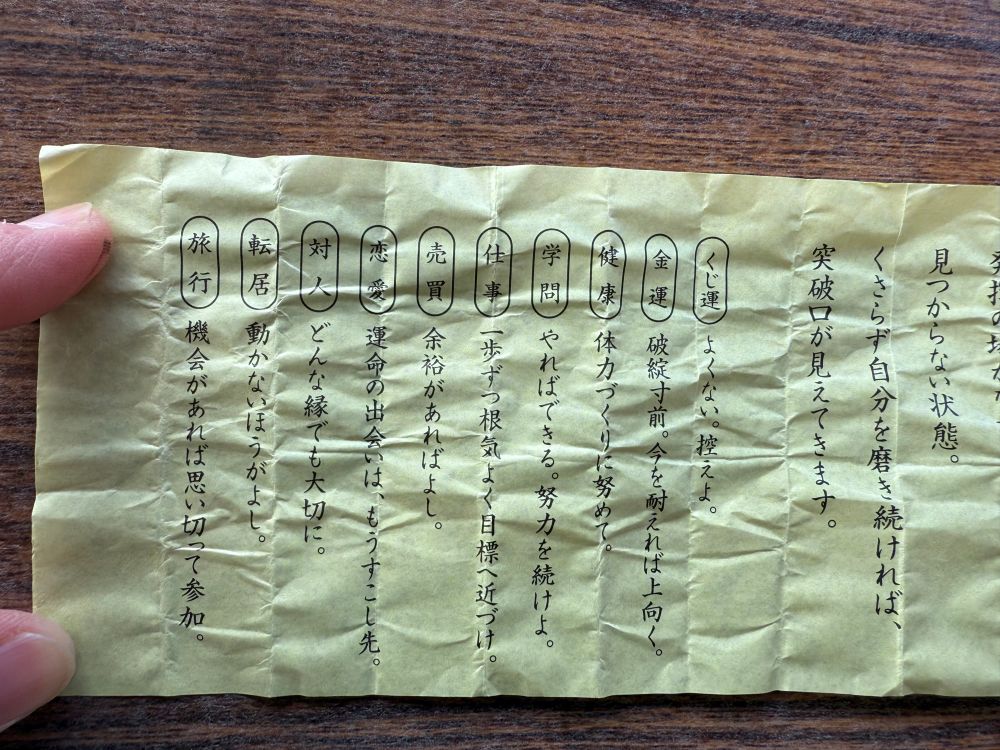 見つからない状態。
くさらず自分を磨き続ければ、
突破口が見えてきます。
くじ運 よくない。控えよ。
金運 破綻寸前。今を耐えれば上向く。
健康 体力づくりに努めて。
学問 やればできる。努力を続けよ。
仕事 一歩ずつ根気よく目標へ近づけ。
売買 余裕があればよし。
恋愛 運命の出会いは、もうすこし先。
対人 どんな縁でも大切に。
転居 動かないほうがよし。
旅行 機会があれば思い切って参加。